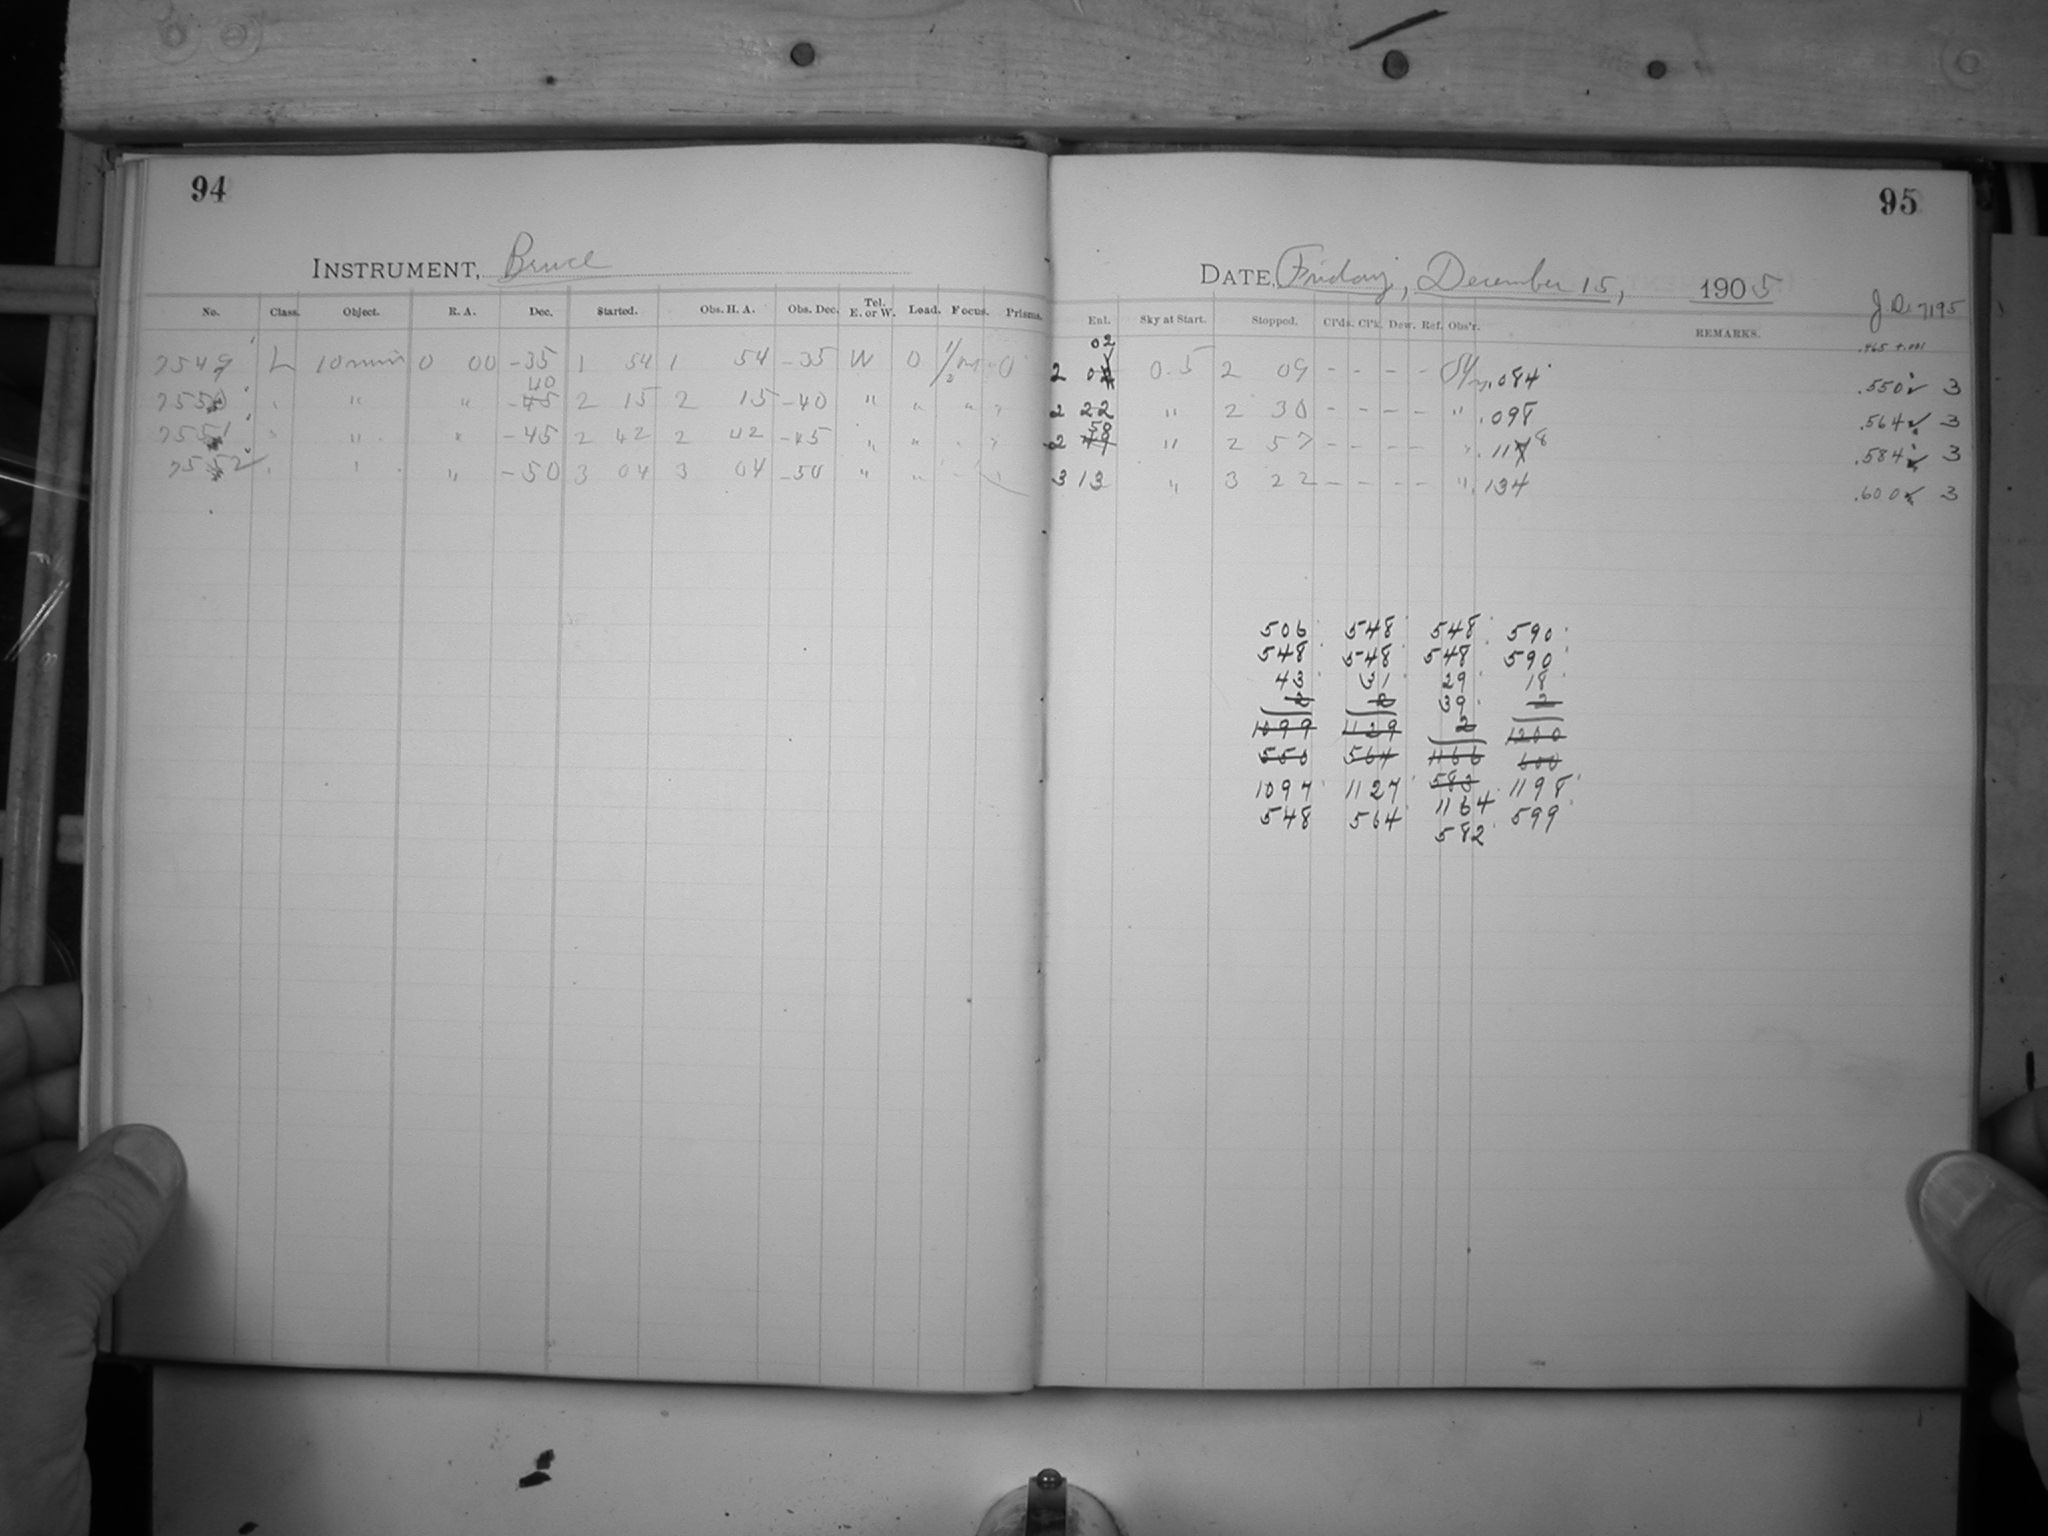 94
INSTRUMENT, Bruce
No. Class. Object. R. A. Dec. Started. Obs. H. A. Obs. Dec. Tel. E. or W. Load. Focus. Prisms.
7549 L 10 min 0 00 -35 1 54 1 54 -35 W 0 0
40
7550 " " -45 2 15 2 15 -40 " " " "
7551 " " " -45 2 42 2 42 -45 " " " "
7552 " -50 3 04 3 04 -50 " "
95
DATE, Friday, December 15, 1905
J.D. 7195
Ent. Sky at Start. Stopped. Cl'ds. Cl'k. Dew. Ref. Obs'r. REMARKS.
02 .465 +.001
2 0.5 2 09 - - - - .084 .550 ✓ 3
2 22 " 2 30 - - - - " .098 .564 ✓ 3
58
2 49 " 2 57 - - - - " .117 8 .584 ✓ 3
3 13 " 3 22 - - - - " .134 .600 ✓ 3
506 548 548 590
548 548 548 590
43 31 29 18
2 2 39 2
1099 1129 2 1200
550 564 1166 600
1097 1127 583 1198
548 564 1164 599
582